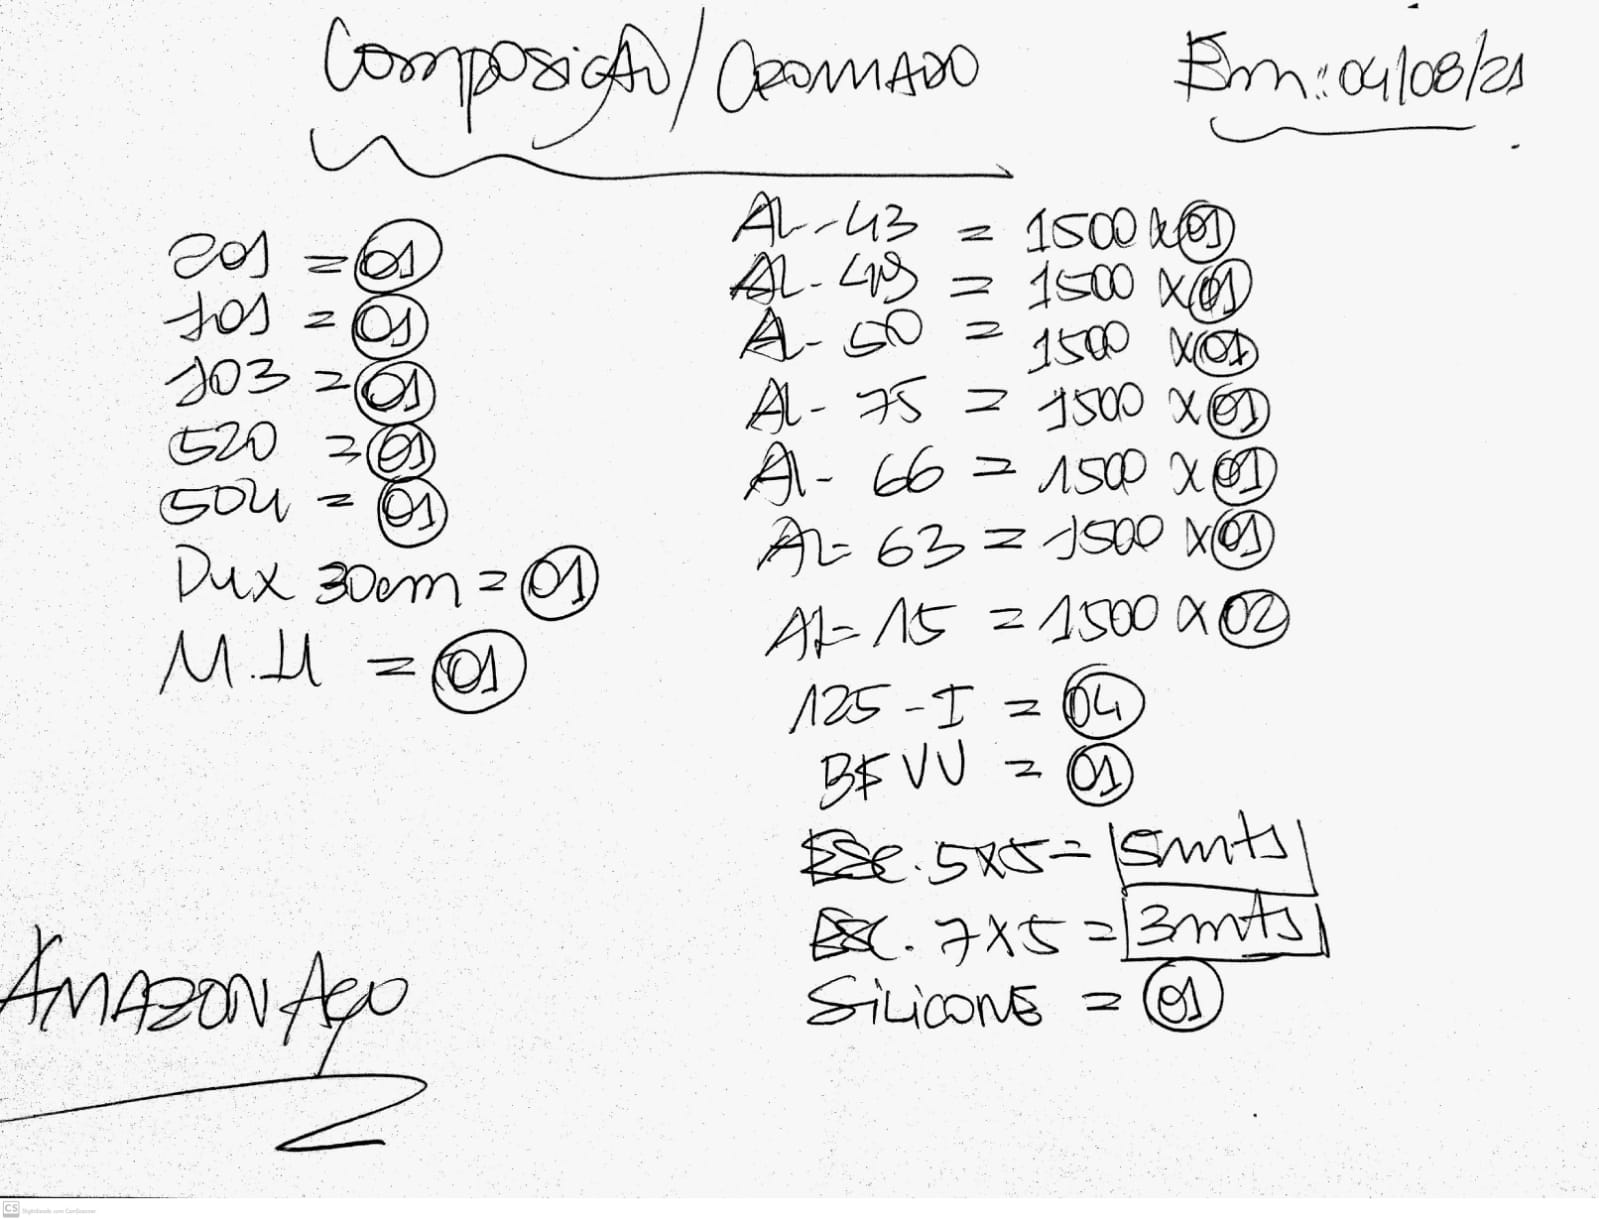 Composição/CROMADO
Em: 04/08/21
201 = 01
101 = 01
103 = 01
520 = 01
504 = 01
Dux 30cm = 01
M.H = 01
AL-43 = 1500 x 01
AL-49 = 1500 x 01
AL-50 = 1500 x 01
AL-75 = 1500 x 01
AL-66 = 1500 x 01
AL-63 = 1500 x 01
AL-15 = 1500 x 02
125-I = 04
VU = 01
Esc. 5x5 = 5mts
Esc. 7x5 = 3mts
SILICONE = 01
AMAZON Aço
CS